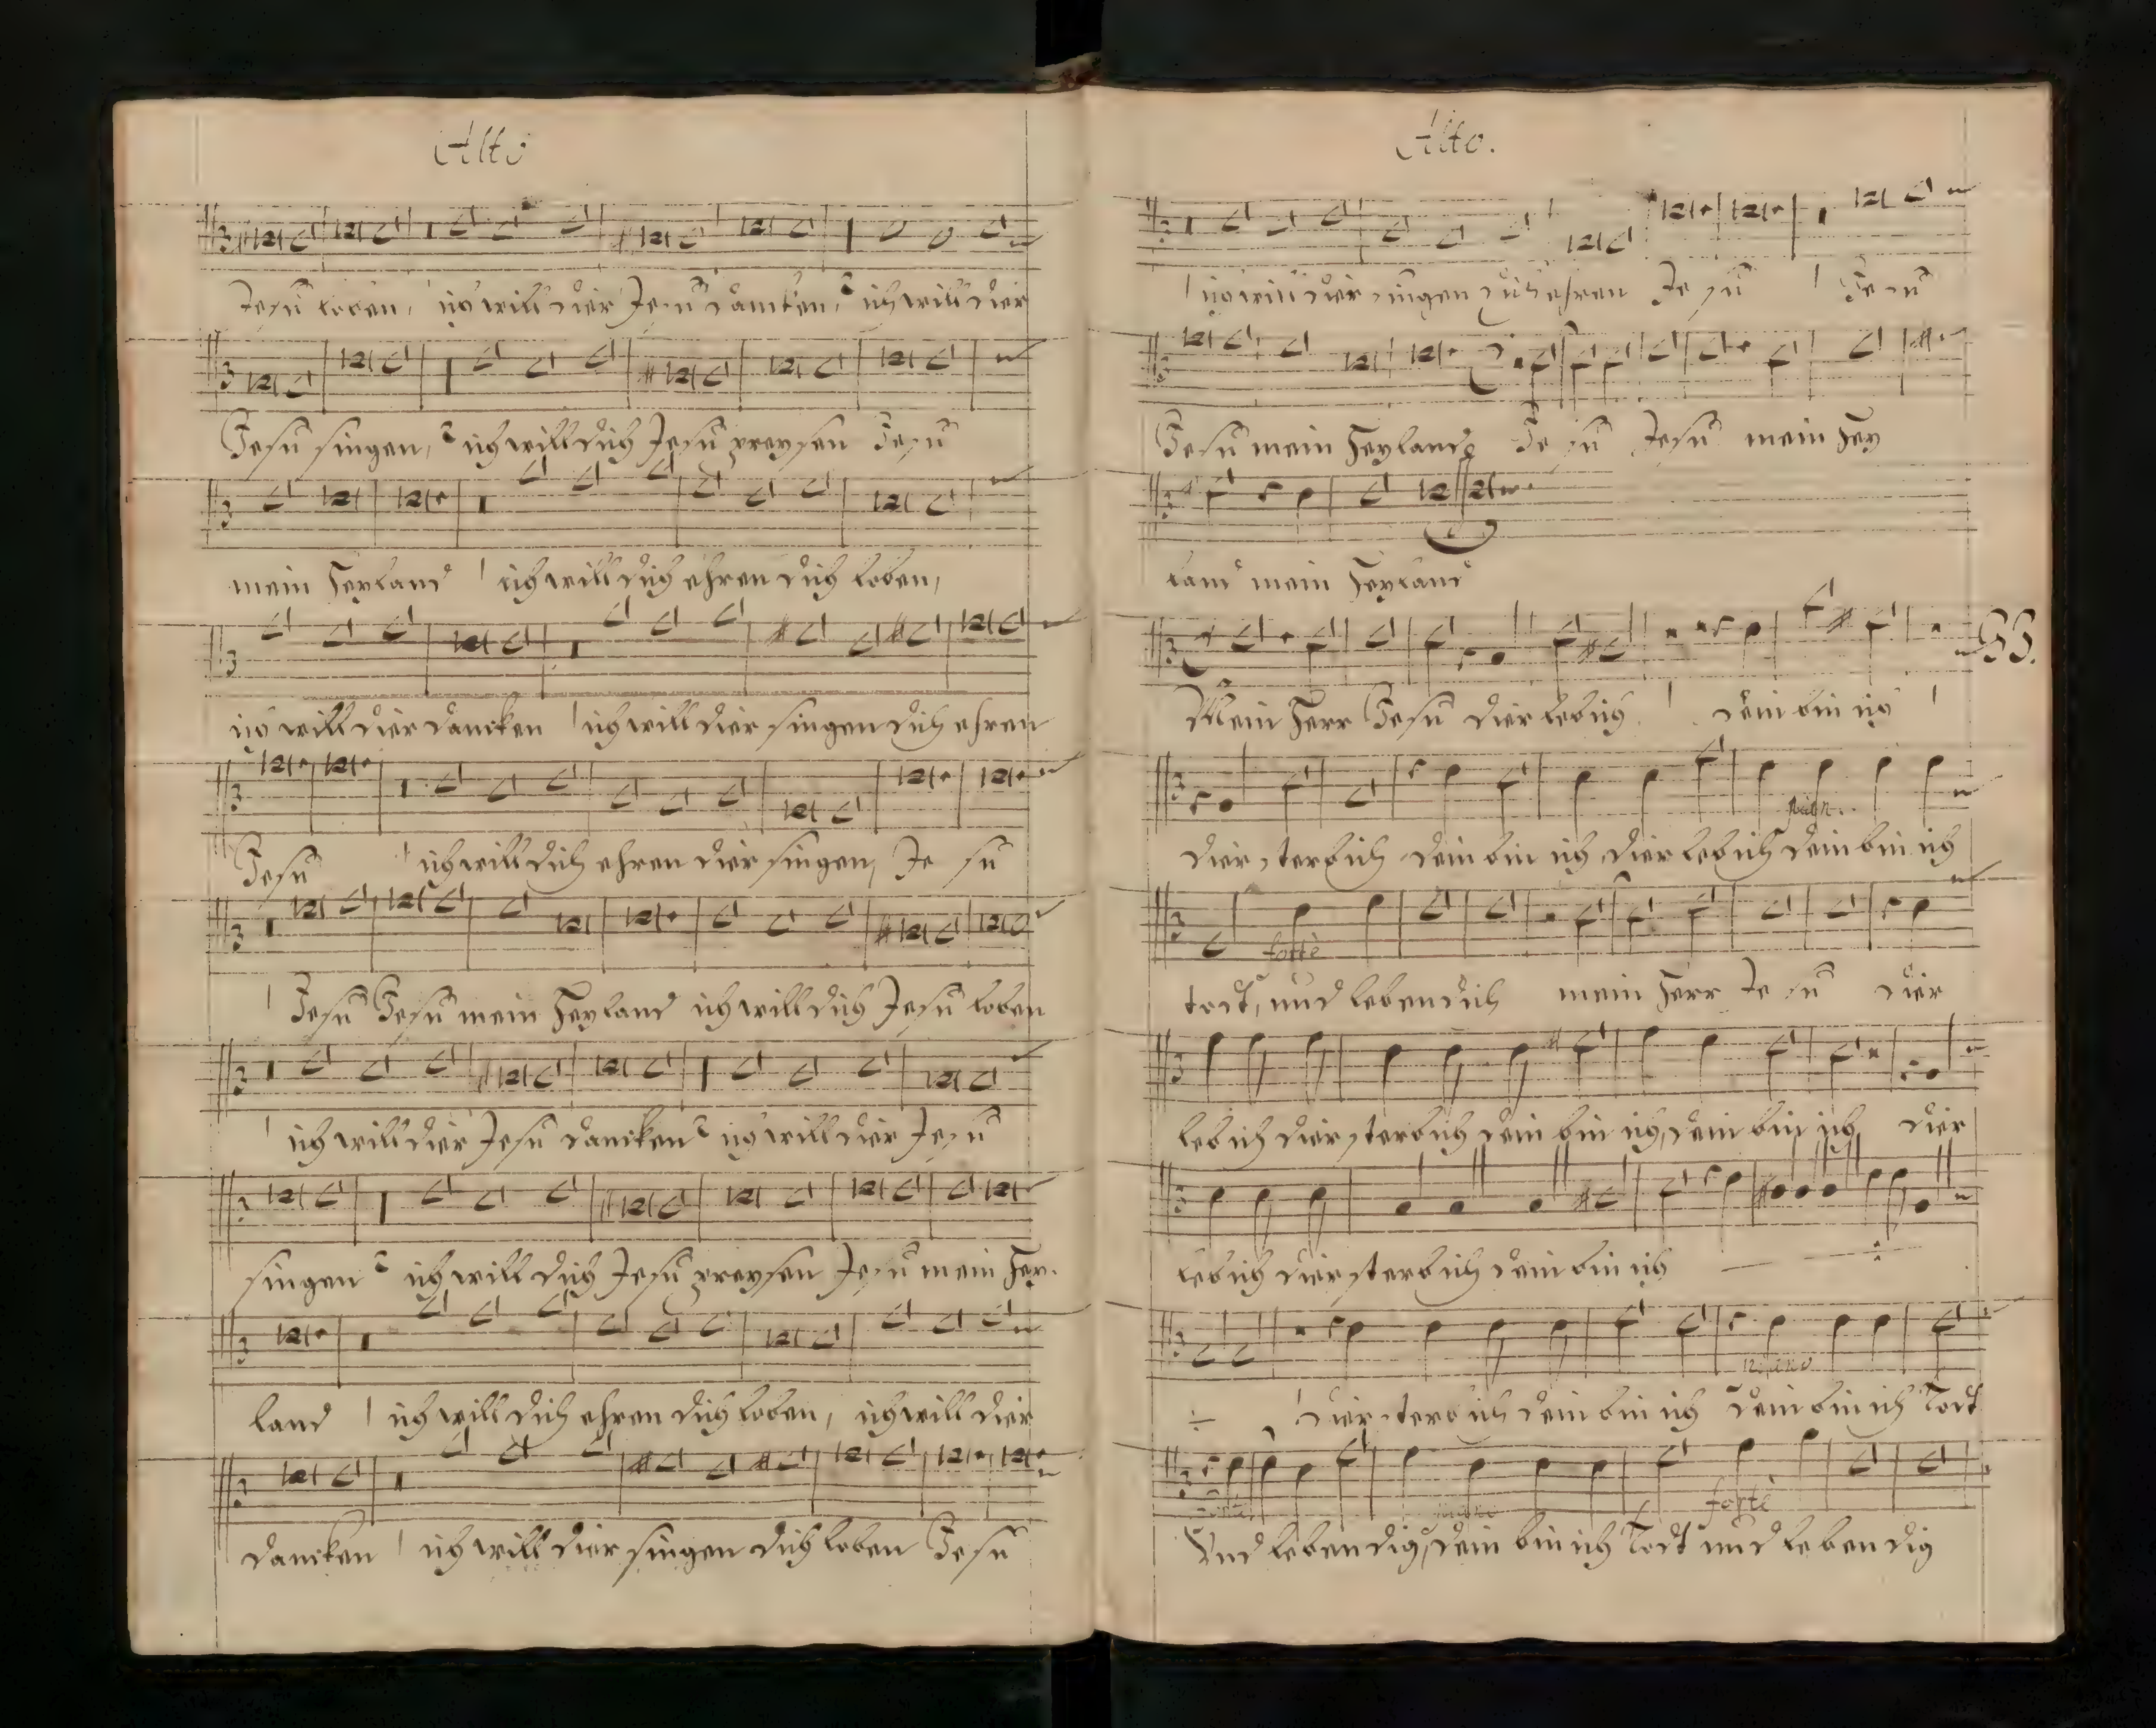 Alto
Jesu loben, ich will dier Jesu dancken, ich will dier
Jesu singen, ich will dich Jesu preysen Jesu
mein Heyland ich will dich ehren dich loben,
ich will dier dancken ich will dier singen dich ehren
Jesu ich will dich ehren dier singen, Je su
Jesu Jesu mein Heyland ich will dich Jesu loben
ich will dier Jesu dancken ich will dier Jesu
singen ich will dich Jesu preysen Jesu mein Hey-
land ich will dich ehren dich loben, ich will dier
dancken ich will dier singen dich loben Jesu
Alto.
ich will dier singen dich ehren Je su Je su
Jesu mein Heyland Je su Jesu mein Hey
land mein Heyland
53.
Mein Herr Jesu dier leb ich dein bin ich
dier sterb ich dein bin ich dier leb ich dein bin ich
forte
todt, und lebendich mein Herr Je su dier
leb ich dier sterb ich dein bin ich, dein bin ich dier
leb ich dier sterb ich dein bin ich
piano
dier sterb ich dein bin ich dein bin ich Todt
forte
Und lebendig, dein bin ich Todt und lebendig